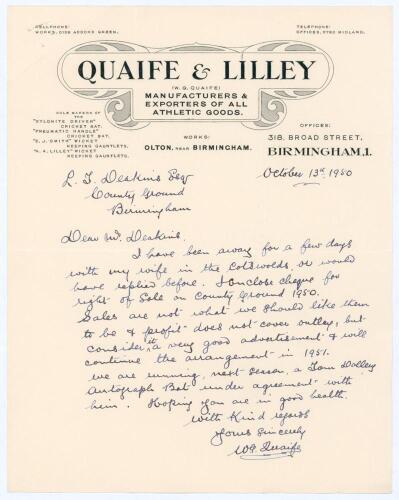 CELLPHONE:
WORKS, 0128 ACOCKS GREEN.
TELEPHONE:
OFFICES, 0780 MIDLAND.
QUAIFE & LILLEY
(W. G. QUAIFE)
MANUFACTURERS &
EXPORTERS OF ALL
ATHLETIC GOODS.
SOLE MAKERS OF
THE
"XYLONITE DRIVER"
CRICKET BAT.
"PNEUMATIC HANDLE"
CRICKET BAT.
"E. J. SMITH" WICKET
KEEPING GAUNTLETS.
"H. A. LILLEY" WICKET
KEEPING GAUNTLETS.
WORKS:
OLTON, NEAR BIRMINGHAM.
OFFICES:
318, BROAD STREET,
BIRMINGHAM,1.
October 13th 1950
L. T. Deakins Esqr
County Ground
Birmingham
Dear Mr. Deakins.
I have been away for a few days
with my wife in the Cotswolds, or would
have replied before. I enclose cheque for
right of Sale on County Ground 1950.
Sales are not what we should like them
to be & profit does not cover outlay, but
consider it a very good advertisement & will
continue the arrangement in 1951.
We are running, next season, a Tom Dollery
Autograph Bat under agreement with
him. Hoping you are in good health.
With Kind regards
Yours Sincerely
W G Quaife